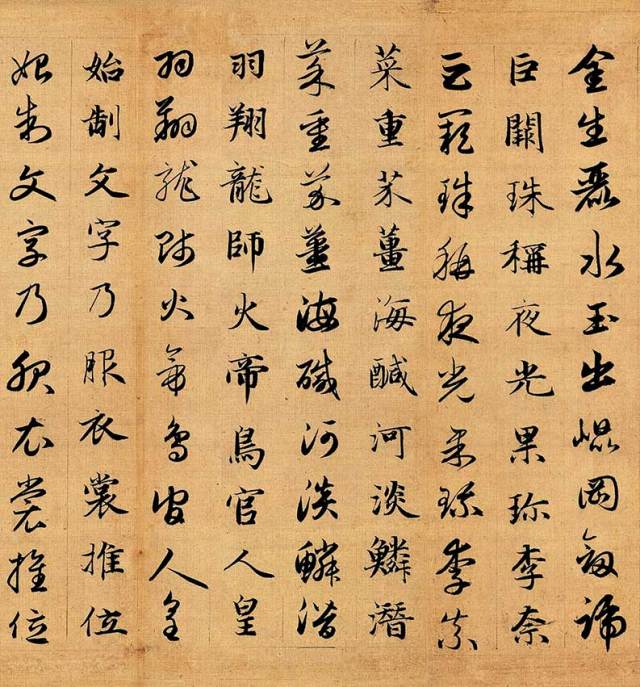 金生麗水玉出崐岡劒號
巨闕珠稱夜光果珎李柰
巨闕珠稱夜光果珎李柰
菜重芥薑海鹹河淡鱗潛
菜重芥薑海鹹河淡鱗潛
羽翔龍師火帝鳥官人皇
羽翔龍師火帝鳥官人皇
始制文字乃服衣裳推位
始制文字乃服衣裳推位